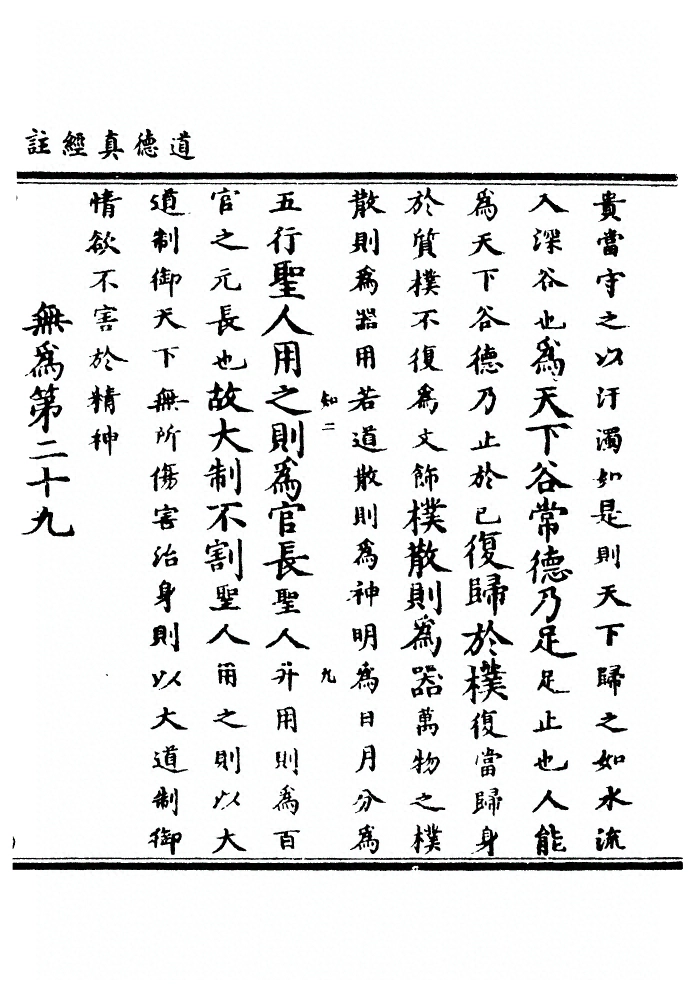 道德真經註
貴當守之以汙濁如是則天下歸之如水流
入深谷也為天下谷常德乃足足止也人能
為天下谷德乃止於已復歸於樸復當歸身
於質樸不復為文飾樸散則為器萬物之樸
散則為器用若道散則為神明為日月分為
知二
九
五行聖人用之則為官長聖人升用則為百
官之元長也故大制不割聖人用之則以大
道制御天下無所傷害治身則以大道制御
情欲不害於精神
無為第二十九